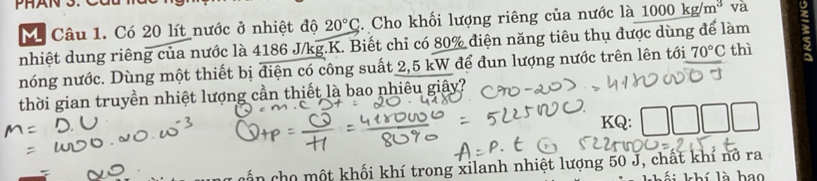 M Câu 1. Có 20 lít nước ở nhiệt độ 20°C. Cho khối lượng riêng của nước là 1000 kg/m³ và
nhiệt dung riêng của nước là 4186 J/kg.K. Biết chỉ có 80% điện năng tiêu thụ được dùng để làm
nóng nước. Dùng một thiết bị điện có công suất 2,5 kW để đun lượng nước trên lên tới 70°C thì
thời gian truyền nhiệt lượng cần thiết là bao nhiêu giây?
Q = m.c Δt = 20. 4180 (70-20) = 4180000 J
m = D.V
= 1000.20.10⁻³
= 20
Qtp = Q/H = 4180000/80% = 5225000
KQ:
A = P.t
5225000 = 2,5. t
cho một khối khí trong xilanh nhiệt lượng 50 J, chất khí nở ra
DRAWING